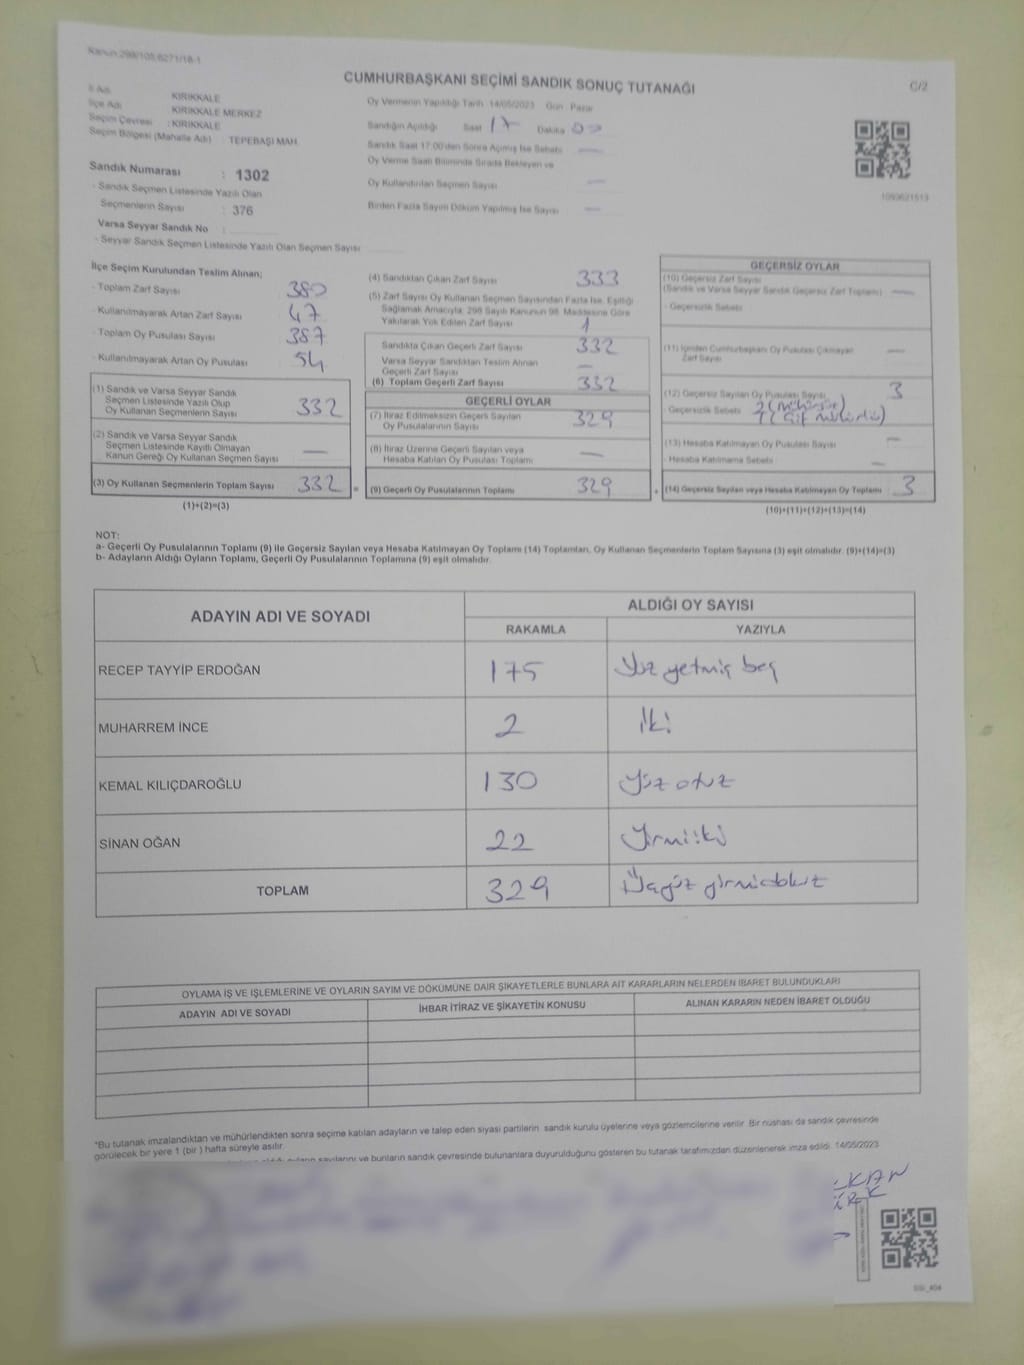 Kanun:298/105;6271/18-1
CUMHURBAŞKANI SEÇİMİ SANDIK SONUÇ TUTANAĞI
C/2
İl Adı : KIRIKKALE
İlçe Adı : KIRIKKALE MERKEZ
Seçim Çevresi : KIRIKKALE
Seçim Bölgesi (Mahalle Adı) : TEPEBAŞI MAH.
Oy Vermenin Yapıldığı Tarih 14/05/2023 Gün : Pazar
Sandığın Açıldığı Saat 17 Dakika 00
Sandık Saat 17:00'den Sonra Açılmış İse Sebebi —
Oy Verme Saati Bitiminde Sırada Bekleyen ve
Oy Kullandırılan Seçmen Sayısı —
Birden Fazla Sayım Döküm Yapılmış İse Sayısı —
1090621513
Sandık Numarası : 1302
- Sandık Seçmen Listesinde Yazılı Olan
Seçmenlerin Sayısı : 376
Varsa Seyyar Sandık No :
- Seyyar Sandık Seçmen Listesinde Yazılı Olan Seçmen Sayısı
İlçe Seçim Kurulundan Teslim Alınan;
- Toplam Zarf Sayısı 380
- Kullanılmayarak Artan Zarf Sayısı 47
- Toplam Oy Pusulası Sayısı 387
- Kullanılmayarak Artan Oy Pusulası 54
(1) Sandık ve Varsa Seyyar Sandık
Seçmen Listesinde Yazılı Olup
Oy Kullanan Seçmenlerin Sayısı 332
(2) Sandık ve Varsa Seyyar Sandık
Seçmen Listesinde Kayıtlı Olmayan
Kanun Gereği Oy Kullanan Seçmen Sayısı —
(3) Oy Kullanan Seçmenlerin Toplam Sayısı 332
(1)+(2)=(3)
(4) Sandıktan Çıkan Zarf Sayısı 333
(5) Zarf Sayısı Oy Kullanan Seçmen Sayısından Fazla İse, Eşitliği
Sağlamak Amacıyla; 298 Sayılı Kanunun 98. Maddesine Göre
Yakılarak Yok Edilen Zarf Sayısı 1
Sandıkta Çıkan Geçerli Zarf Sayısı 332
Varsa Seyyar Sandıktan Teslim Alınan
Geçerli Zarf Sayısı —
(6) Toplam Geçerli Zarf Sayısı 332
GEÇERLİ OYLAR
(7) İtiraz Edilmeksizin Geçerli Sayılan
Oy Pusulalarının Sayısı 329
(8) İtiraz Üzerine Geçerli Sayılan veya
Hesaba Katılan Oy Pusulası Toplamı —
(9) Geçerli Oy Pusulalarının Toplamı 329
GEÇERSİZ OYLAR
(10) Geçersiz Zarf Sayısı
(Sandık ve Varsa Seyyar Sandık Geçersiz Zarf Toplamı) —
- Geçersizlik Sebebi
(11) İçinden Cumhurbaşkanı Oy Pusulası Çıkmayan
Zarf Sayısı —
(12) Geçersiz Sayılan Oy Pusulası Sayısı 3
- Geçersizlik Sebebi 2 (mühürsüz)
1 (çift mühürlü)
(13) Hesaba Katılmayan Oy Pusulası Sayısı —
- Hesaba Katılmama Sebebi —
(14) Geçersiz Sayılan veya Hesaba Katılmayan Oy Toplamı 3
(10)+(11)+(12)+(13)=(14)
NOT:
a- Geçerli Oy Pusulalarının Toplamı (9) ile Geçersiz Sayılan veya Hesaba Katılmayan Oy Toplamı (14) Toplamları, Oy Kullanan Seçmenlerin Toplam Sayısına (3) eşit olmalıdır. (9)+(14)=(3)
b- Adayların Aldığı Oyların Toplamı, Geçerli Oy Pusulalarının Toplamına (9) eşit olmalıdır.
ADAYIN ADI VE SOYADI ALDIĞI OY SAYISI
RAKAMLA YAZIYLA
RECEP TAYYİP ERDOĞAN 175 Yüz yetmiş beş
MUHARREM İNCE 2 İki
KEMAL KILIÇDAROĞLU 130 Yüz otuz
SİNAN OĞAN 22 Yirmi iki
TOPLAM 329 Üçyüz yirmidokuz
OYLAMA İŞ VE İŞLEMLERİNE VE OYLARIN SAYIM VE DÖKÜMÜNE DAİR ŞİKAYETLERLE BUNLARA AİT KARARLARIN NELERDEN İBARET BULUNDUKLARI
ADAYIN ADI VE SOYADI İHBAR İTİRAZ VE ŞİKAYETİN KONUSU ALINAN KARARIN NEDEN İBARET OLDUĞU
*Bu tutanak imzalandıktan ve mühürlendikten sonra seçime katılan adayların ve talep eden siyasi partilerin sandık kurulu üyelerine veya gözlemcilerine verilir. Bir nüshası da sandık çevresinde
görülecek bir yere 1 (bir) hafta süreyle asılır.
sayılarını ve bunların sandık çevresinde bulunanlara duyurulduğunu gösteren bu tutanak tarafımızdan düzenlenerek imza edildi. 14/05/2023